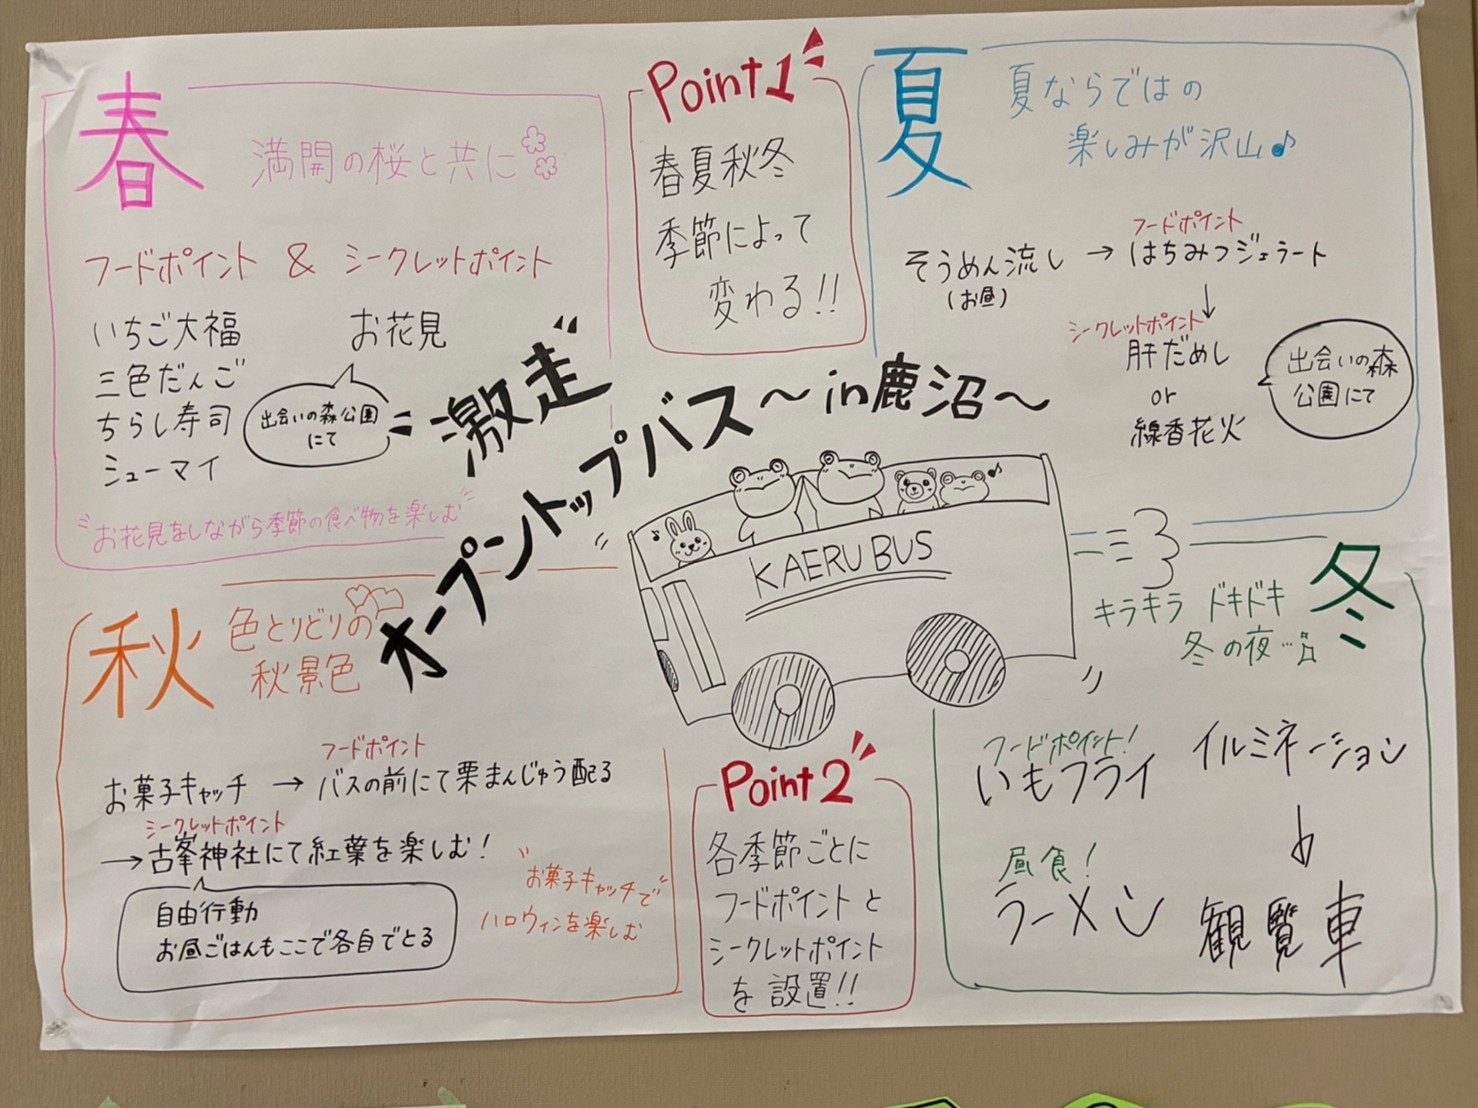 激走
オープントップバス～in鹿沼～
KAERU BUS
Point1
春夏秋冬
季節によって
変わる!!
春
満開の桜と共に
フードポイント & シークレットポイント
いちご大福
三色だんご
ちらし寿司
シューマイ
お花見
出会いの森公園
にて
お花見をしながら季節の食べ物を楽しむ
夏
夏ならではの
楽しみが沢山♪
そうめん流し
(お昼)
→
フードポイント
はちみつジェラート
↓
シークレットポイント
肝だめし
or
線香花火
出会いの森
公園にて
秋
色とりどりの
秋景色
お菓子キャッチ
→
フードポイント
バスの前にて栗まんじゅう配る
シークレットポイント
→古峯神社にて紅葉を楽しむ!
自由行動
お昼ごはんもここで各自でとる
お菓子キャッチで
ハロウィンを楽しむ
Point2
各季節ごとに
フードポイントと
シークレットポイント
を設置!!
冬
キラキラ ドキドキ
冬の夜…
フードポイント!
いもフライ
昼食!
ラーメン
イルミネーション
↓
観覧車